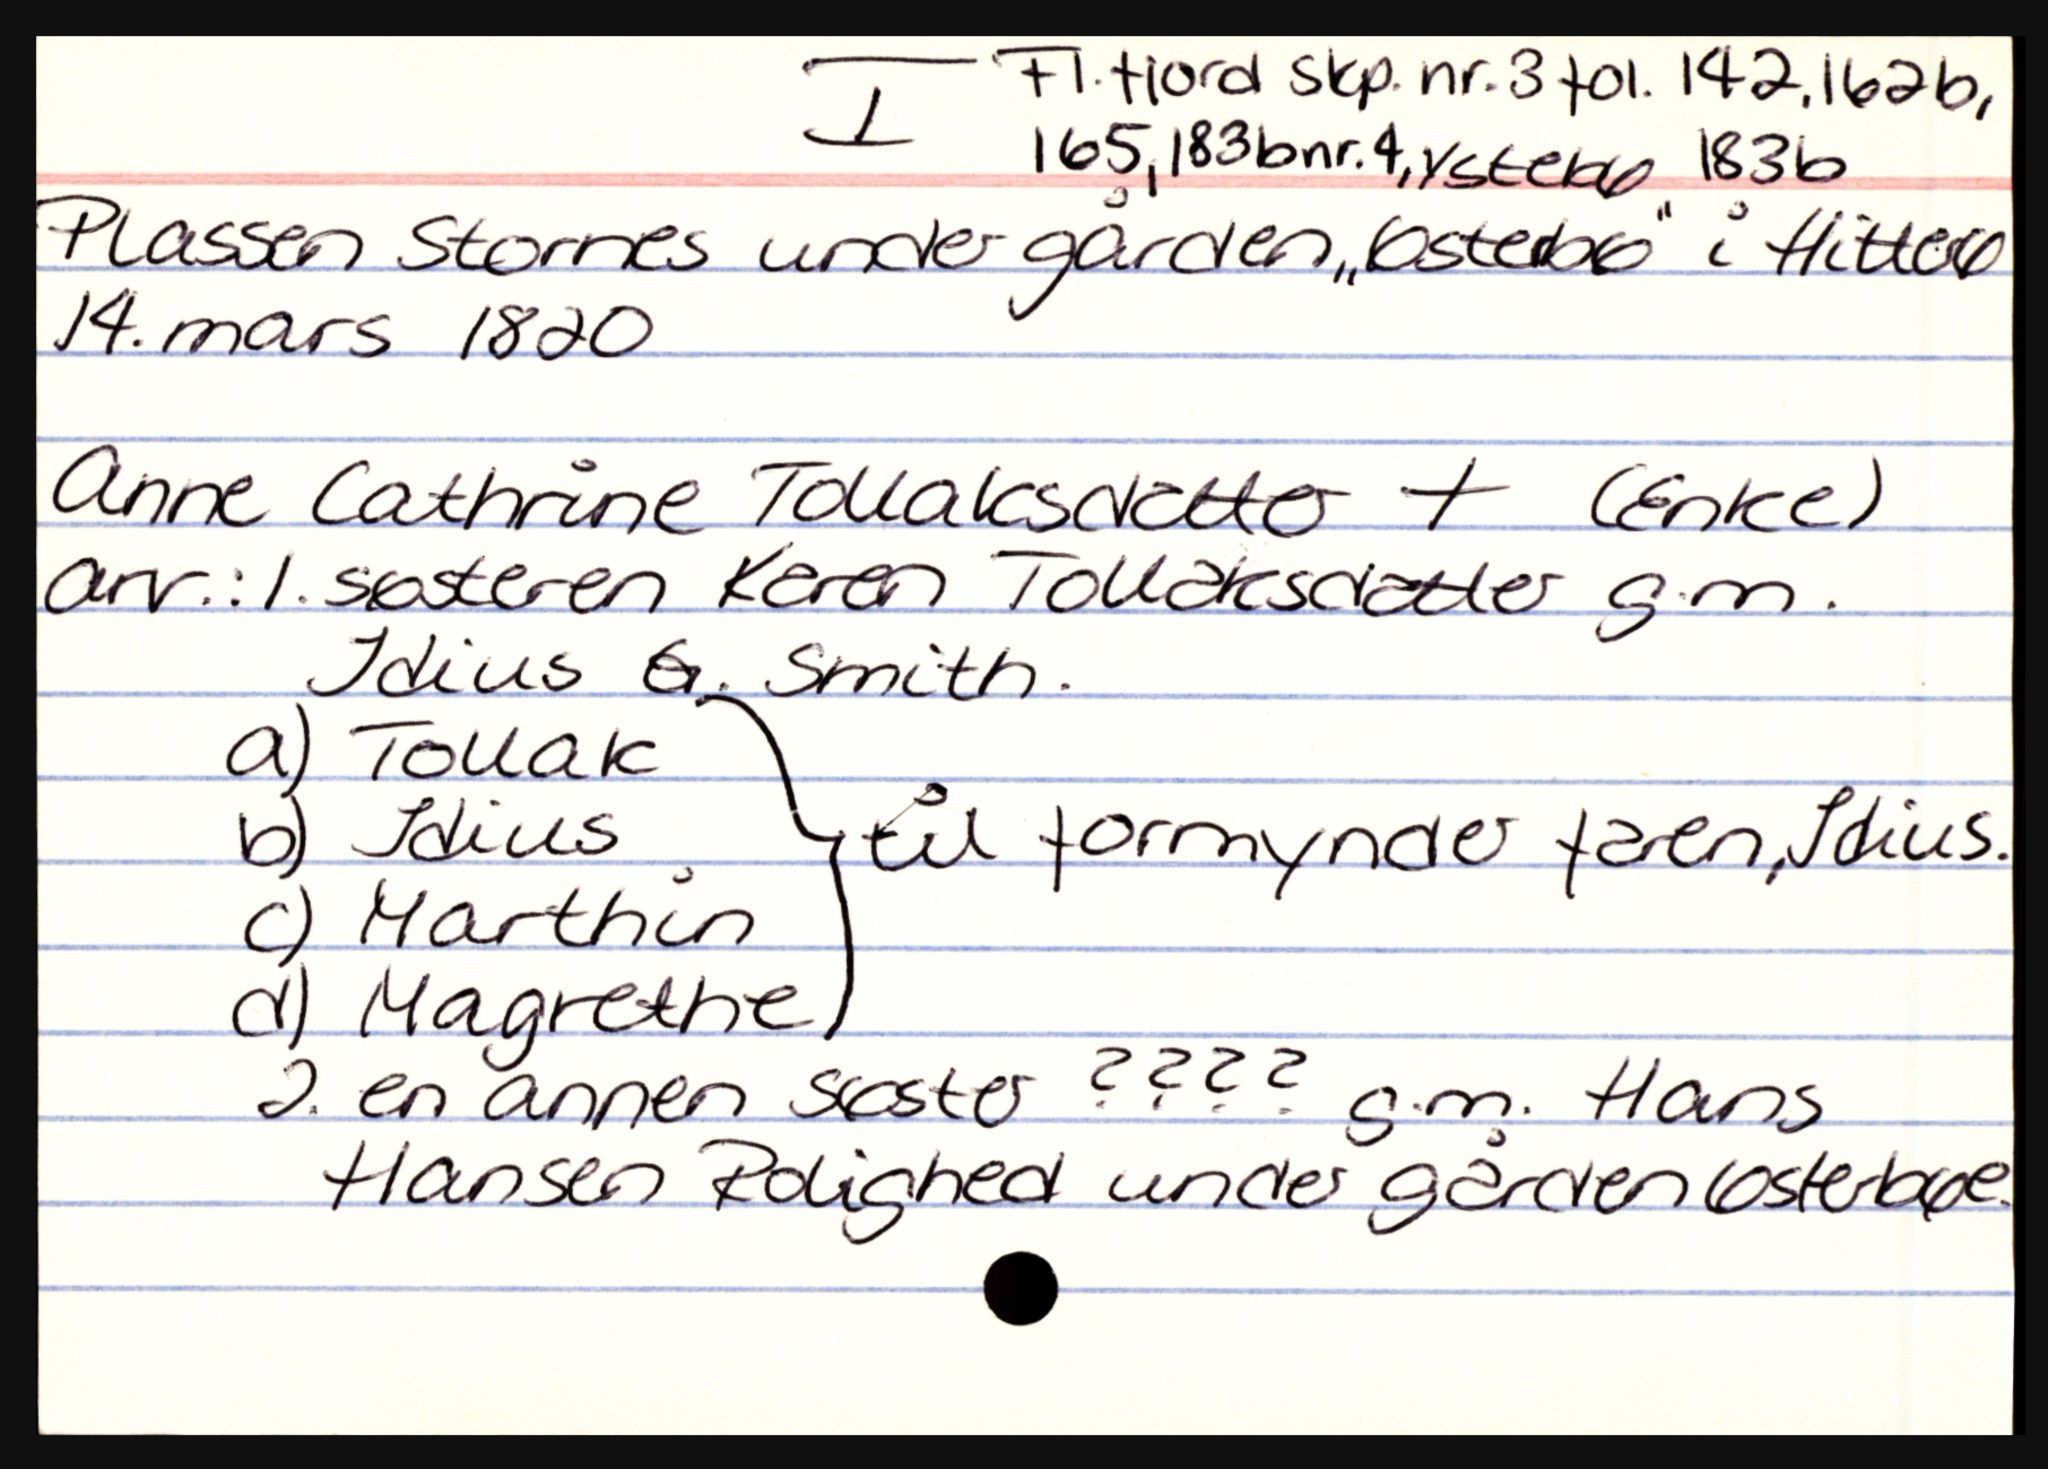 I Fl.fjord skp. nr. 3 fol. 142, 162b,
165, 183b nr. 4, Ystebø 183b
Plassen Stornes under gården „Østerbø" i Hitterø
14. mars 1820
Anne Cathrine Tollaksdatter + (Enke)
arv.: 1. søsteren Karen Tollaksdatter g.m.
Idius G. Smith.
a) Tollak
b) Idius
c) Marthin
d) Magrethe
til formynder faren, Idius.
2. en annen søster ???? g.m. Hans
Hansen Rolighed under gården Østerbøe.